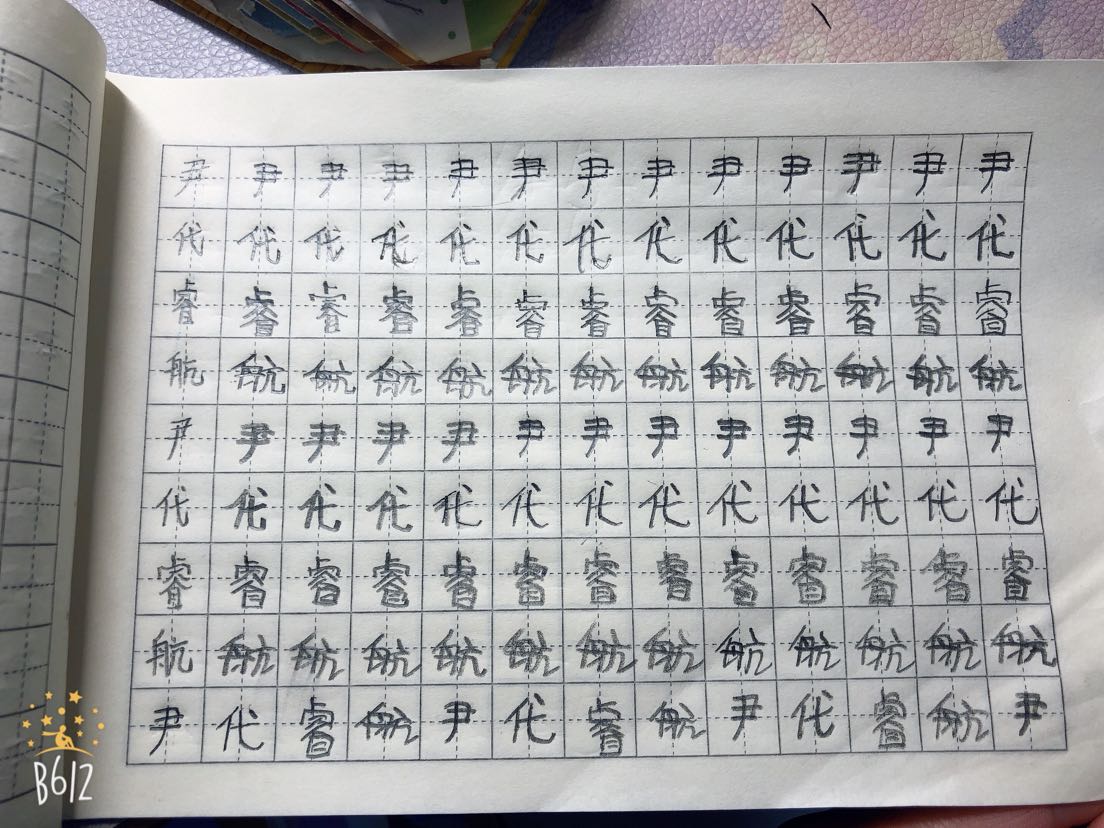 尹尹尹尹尹尹尹尹尹尹尹尹尹
代代代代代代代代代代代代代
睿睿睿睿睿睿睿睿睿睿睿睿睿
航航航航航航航航航航航航航
尹尹尹尹尹尹尹尹尹尹尹尹尹
代代代代代代代代代代代代代
睿睿睿睿睿睿睿睿睿睿睿睿睿
航航航航航航航航航航航航航
尹代睿航尹代睿航尹代睿航尹
B612